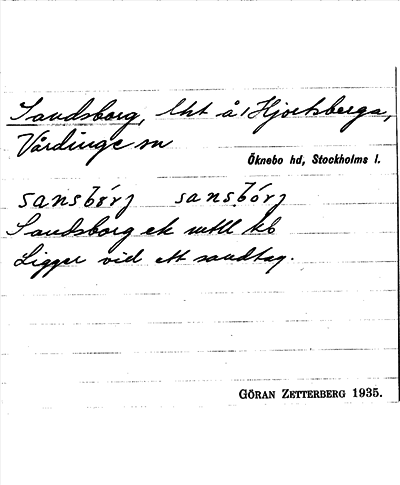 Sandsborg, lht å Hjortsberga,
Vårdinge sn
Öknebo hd, Stockholms l.
sansbórj sansbórj
Sandsborg ek mtll kb
Ligger vid ett sandtag.
GÖRAN ZETTERBERG 1935.